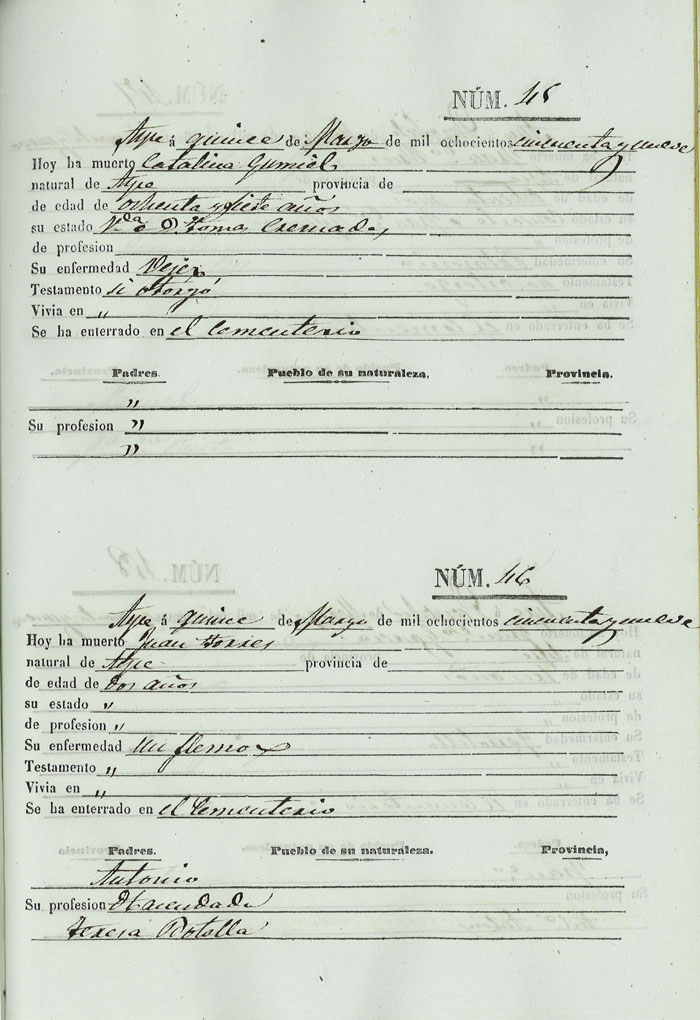 NÚM. 45
Aspe á quince de Marzo de mil ochocientos cincuenta y nueve
Hoy ha muerto Catalina Gumiel
natural de Aspe provincia de
de edad de ochenta y siete años
su estado V.da de D. Toma Cremades
de profesion
Su enfermedad Vejez
Testamento si otorgó
Vivia en „
Se ha enterrado en el Cementerio
Padres. Pueblo de su naturaleza. Provincia.
„
Su profesion „
„
NÚM. 46
Aspe á quince de Marzo de mil ochocientos cincuenta y nueve
Hoy ha muerto Juan Torres
natural de Aspe provincia de
de edad de dos años
su estado „
de profesion „
Su enfermedad un flemon
Testamento „
Vivia en „
Se ha enterrado en el Cementerio
Padres. Pueblo de su naturaleza. Provincia,
Antonio
Su profesion Hacendado
Teresa Botella